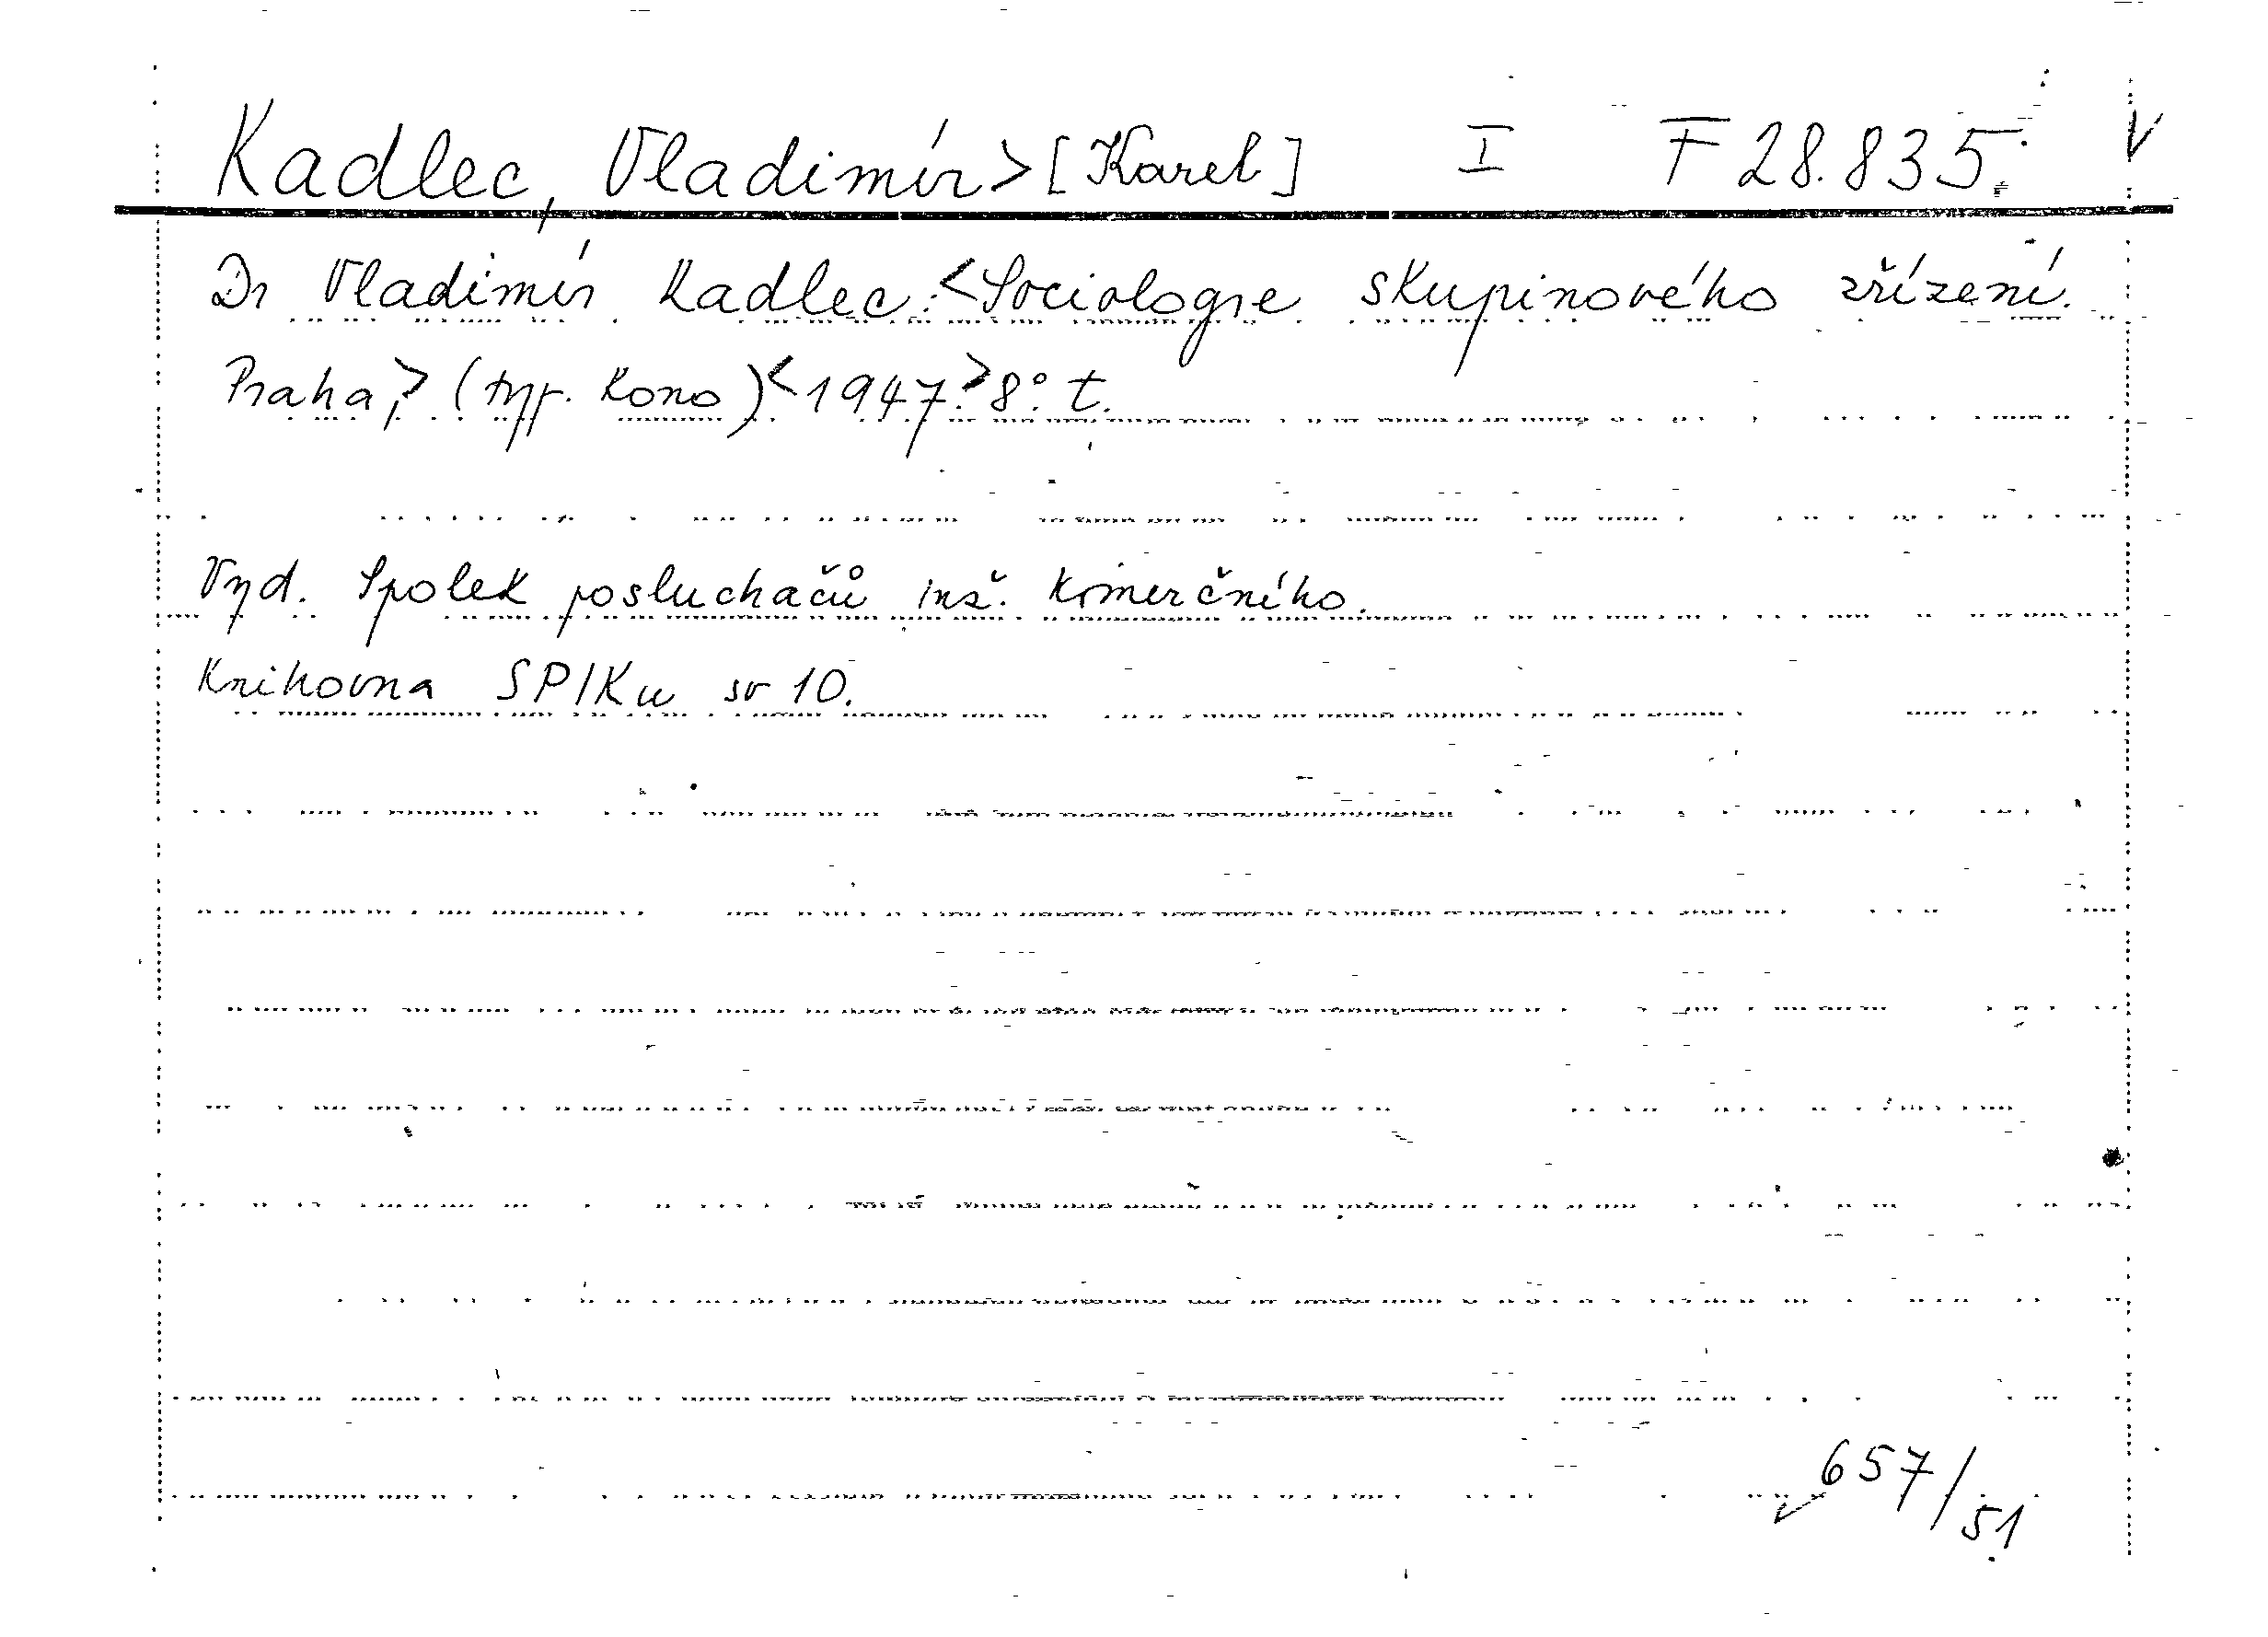 Kadlec, Vladimír> [Karel] I F 28.835. V
Dr Vladimír Kadlec: <Sociologie skupinového zřízení.
Praha,> (typ. Kono) <1947.> 8°. t.
Vyd. Spolek posluchačů inž. komerčního.
Knihovna SPIKu sv 10.
657/51